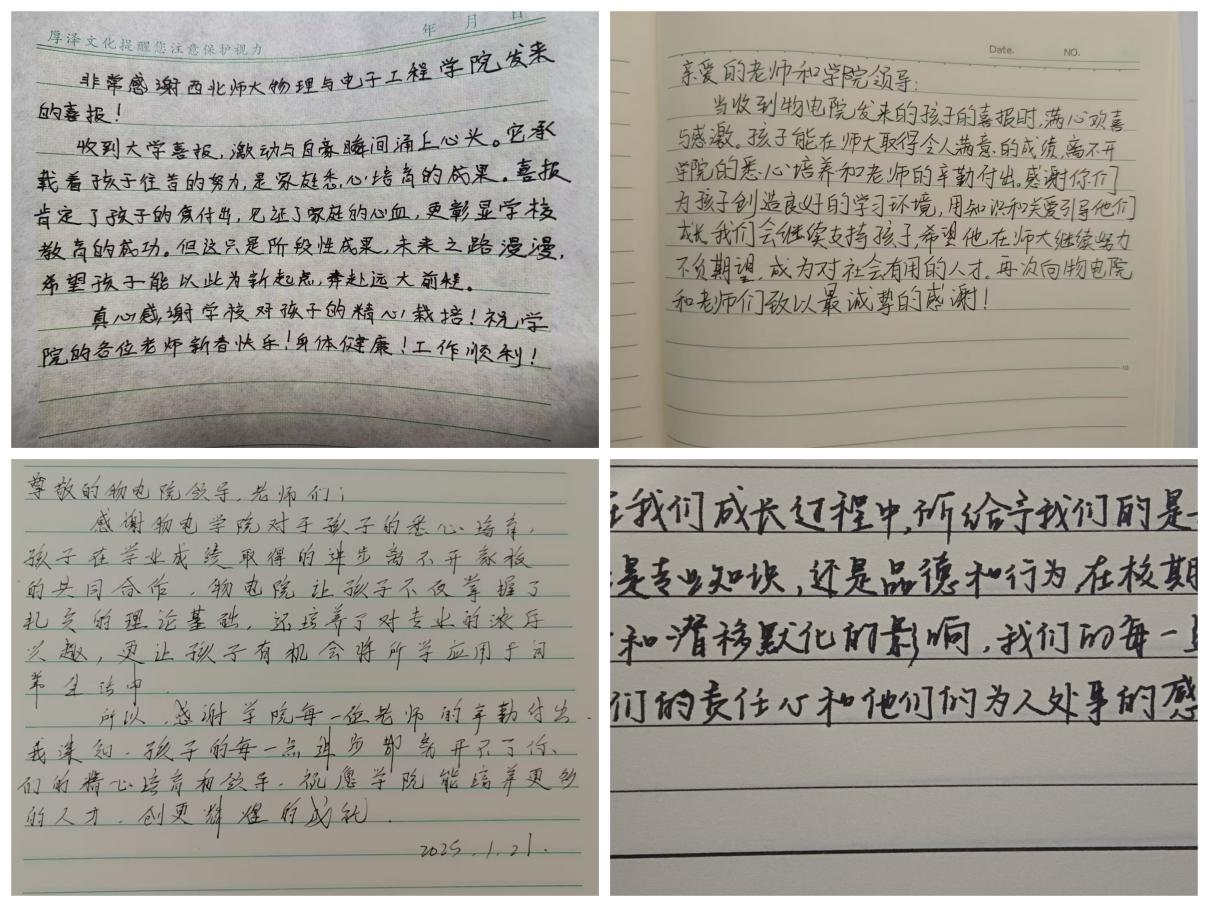 年 月 日
厚泽文化提醒您注意保护视力
非常感谢西北师大物理与电子工程学院发来
的喜报！
收到大学喜报，激动与自豪瞬间涌上心头。它承
载着孩子往昔的努力，是家庭悉心培育的成果。喜报
肯定了孩子的付出，见证了家庭的心血，更彰显学校
教育的成功。但这只是阶段性成果，未来之路漫漫，
希望孩子能以此为新起点，奔赴远大前程。
真心感谢学校对孩子的精心栽培！祝学
院的各位老师新春快乐！身体健康！工作顺利！
Date. NO.
亲爱的老师和学院领导：
当收到物电院发来的孩子的喜报时，满心欢喜
与感激。孩子能在师大取得令人满意的成绩，离不开
学院的悉心培养和老师的辛勤付出。感谢你们
为孩子创造良好的学习环境，用知识和关爱引导他们
成长。我们会继续支持孩子，希望他在师大继续努力
不负期望，成为对社会有用的人才。再次向物电院
和老师们致以最诚挚的感谢！
尊敬的物电院领导，老师们：
感谢物电学院对于孩子的悉心培育，
孩子在学业成绩取得的进步离不开家校
的共同合作，物电院让孩子不仅掌握了
扎实的理论基础，还培养了对专业的浓厚
兴趣，更让孩子有机会将所学应用于日
常生活中．
所以，感谢学院每一位老师的辛勤付出．
我深知．孩子的每一点进步都离开不了你
们的精心培育和领导．祝愿学院能培养更多
的人才．创更辉煌的成就．
2025.1.21.
我们成长过程中，所给予我们的是
是专业知识，还是品德和行为，在校期
和潜移默化的影响，我们的每一
们的责任心和他们们为人处事的感